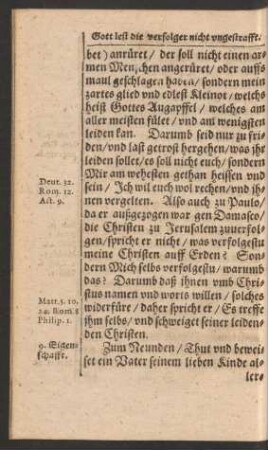 Gott lest die verfolger nicht vngestrafft.
bet) anrüret / der soll nicht einen ar-
men Menschen angerüret / oder auffs
maul geschlagen haben / sondern mein
zartes glied vnd edlest Kleinot / welchs
heist Gottes Augapffel / welches am
aller meisten fület / vnd am wenigsten
leiden kan. Darumb seid nur zu frie-
den / vnd last getrost hergehen / was jhr
leiden sollet / es soll nicht euch / sondern
Mir am wehesten gethan heissen vnd
sein / Ich wil euch wol rechen / vnd jh-
nen vergelten. Also auch zu Paulo /
da er außgezogen war gen Damasco /
die Christen zu Jerusalem zuuerfol-
gen / spricht er nicht / was verfolgestu
meine Christen auff Erden? Son-
dern Mich selbs verfolgestu / warumb
das? Darumb daß ihnen vmb Chri-
stus namen vnd worts willen / solches
widerfüre / daher spricht er / Es treffe
jhm selbs / vnd schweiget seiner leiden-
den Christen.
Zum Neunden / Thut vnd bewei-
set ein Vater seinem lieben Kinde al-
ler-
Deut. 32.
Rom. 12.
Act. 9.
Matt. 5. 10.
24. Rom. 8
Philip. 1.
9. Eigen-
schafft.